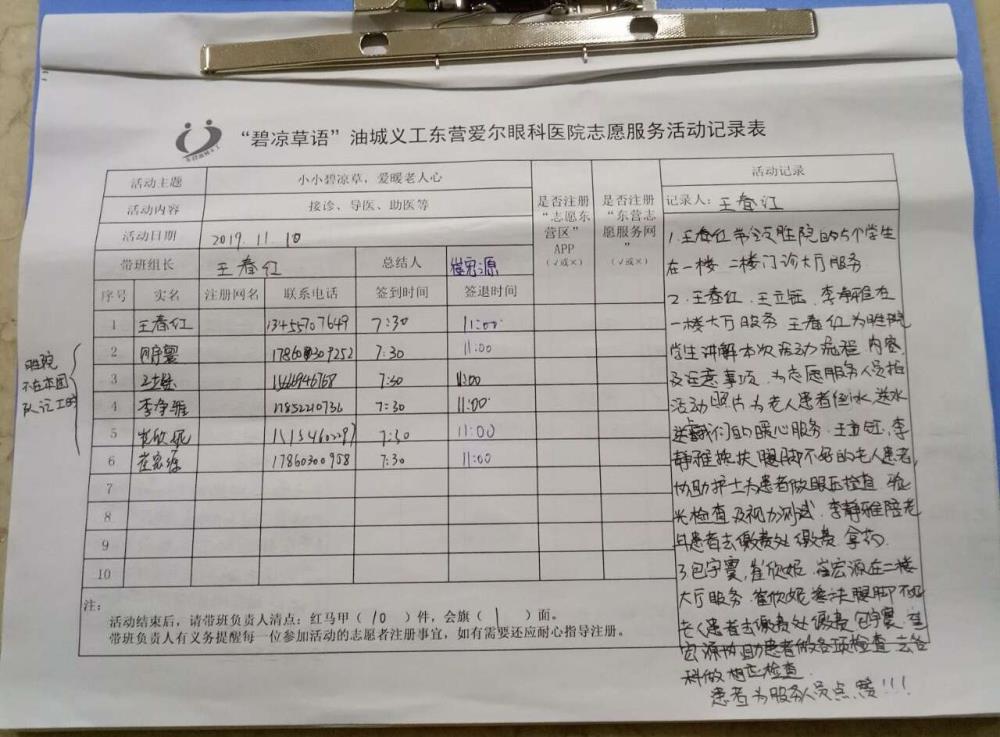 “碧凉草语”油城义工东营爱尔眼科医院志愿服务活动记录表
活动主题 小小碧凉草，爱暖老人心
活动内容 接诊、导医、助医等
活动日期 2019.11.10
带班组长 王春红 总结人 崔宏源
是否注册“志愿东营区”APP（√或×）
是否注册“东营志愿服务网”（√或×）
序号 实名 注册网名 联系电话 签到时间 签退时间
1 王春红 13455707649 7:30 11:00
2 7:30 11:00
3 7:30 11:00
4 李静雅 17852210736 7:30 11:00
5 崔欣妮 7:30 11:00
6 崔宏源 17860300958 7:30 11:00
7
8
9
10
胜院
不在本团
队记工时
注：
活动结束后，请带班负责人清点：红马甲（10）件，会旗（1）面。
带班负责人有义务提醒每一位参加活动的志愿者注册事宜，如有需要还应耐心指导注册。
活动记录
记录人：王春红
1.王春红带领胜院的5个学生
在一楼 二楼门诊大厅服务
2.王春红、王立钰、李静雅在
一楼大厅服务 王春红为胜院
学生讲解本次活动流程 内容
及注意事项，为志愿服务人员拍
活动照片 为老人患者倒水 送水
送我们的暖心服务.王立钰,李
静雅搀扶腿脚不好的老人患者,
协助护士为患者做眼压检查 验
光检查及视力测试.李静雅陪老
月患者去缴费处缴费 拿药.
3.包宇霙,崔欣妮 崔宏源在二楼
大厅服务.崔欣妮搀扶腿脚不好
老人患者去缴费处缴费 包宇霙 崔
宏源协助患者做各项检查 去各
科做相应检查
患者为服务人员点赞!!!